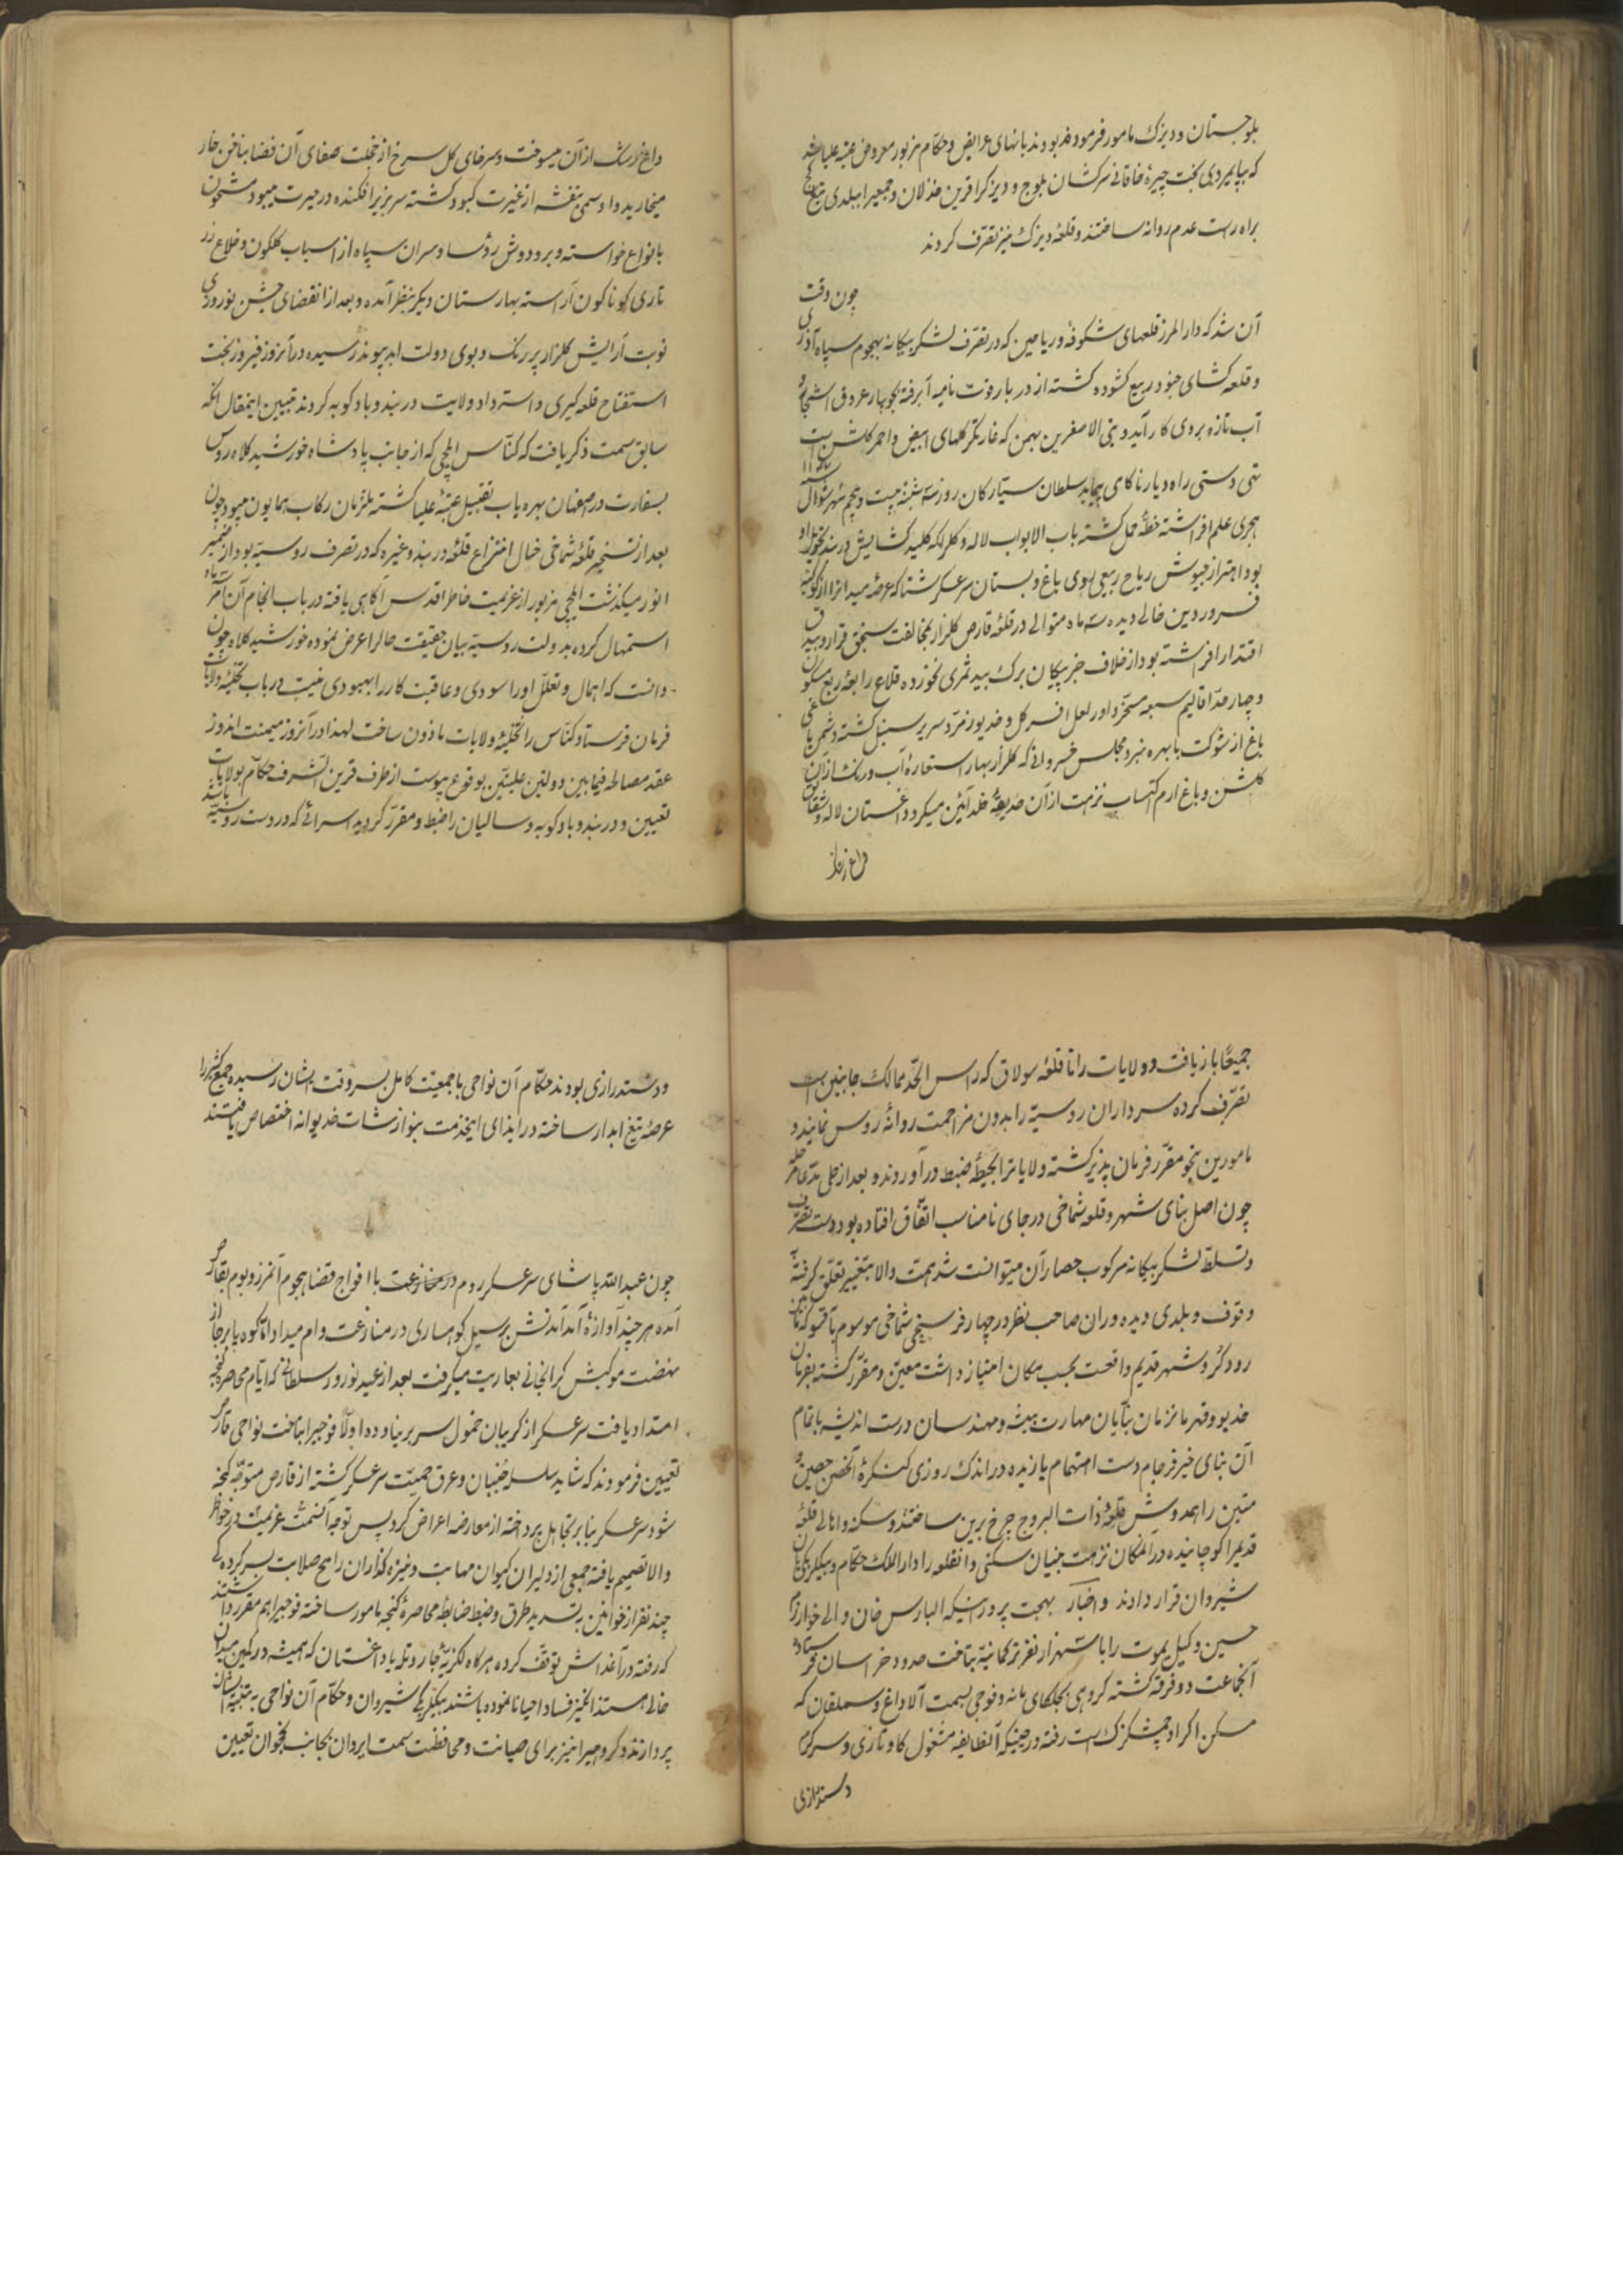 بلوجستان و دیزک مامور فرموده بودند بانهای عرایض و حکام مزبور معروض عتبه علیا شد
که بپایمردی بخت چیره خاقانی سرکشان بلوج و دیزک را قرین خذلان و جمعیرا ببلدی تیغ کج
براه راست عدم روانه ساختند و قلعه دیزک نیز تصرف کردند
چون وقت
آن شد که دار المرز قلعهای شکوفه و ریاحین که در تصرف لشکر بیکانه بهجوم سپاه آذری
و قلعه کشای جنود ربیع کشوده کشته از در بار و نت نامیه آبرفته بجویبار عروق اشجار و
آب تازه بروی کار آید و بنی الاصفرین بهمن که غارتکر کلهای ابیض و احمر کلشن است
تهی دستی راه دیار ناکامی پیماید سلطان سیارکان روز سه شنبه بیست و پنجم شهر شوال سنه ۱۱۴۷
هجری علم افراشته خطه حمل کشته باب الابواب لاله و کلرا که کلید کشایش در بند بخور او
بود اهتزاز جیوش ریاح ربیعی بوی باغ و بستان سرعسکر شتا که عرصه میدانرا از کوکبه
فروردین خالی دیده سه ماه متوالی در قلعه قارص کلزار بمخالفت سنجق قرار و بیدق
اقتدار افراشته بود از خلاف جز پیکان برک بید ثمری نخورده قلاع رابعه ربع مسکون
و چار حد اقالیم سبعه مسخر داور لعل افسر کل و خدیو زمرد سریر سنبل کشته و شمن یاغی
باغ از شوکت بابهره نبرد مجلس خسروانی که کلزار بهار استعاره آب و رنک از آن
کلشن و باغ ارم اکتساب نزهت از آن حدیقه خلد آئین میکرد داغستان لاله و شقایق
داغ رشک از آن میسوخت و سرخای کل سرخ از خجلت صفای آن فضا بناخن خار
میخارید و اوسمی بنفشه از غیرت کبود کشته سر بزیر افکنده در حیرت میبود مشحون
بانواع خواسته و بر و دوش رؤسا و سران سپاه از اسباب کلکون و خلاع زر
تاری کوناکون آراسته بهارستان دیکر بنظر آمده و بعد از انقضای جشن نوروزی
نوبت آرایش کلزار پر رنک و بوی دولت ابد پیوند رسیده در آنروز فیروز بخت
استفتاح قلعه کیری و استرداد ولایت دربند و بادکوبه کردند تبیین اینمقال آنکه
سابق سمت ذکر یافت که کنّاس ایلچی که از جانب پادشاه خورشید کلاه روس
بسفارت در اصفهان بهره یاب تقبیل عتبه علیا کشته ملتزمان رکاب همایون میبود چون
بعد از تسخیر قلعه شماخی خیال انتزاع قلعه دربند و غیره که در تصرف روسیه بود از ضمیر
انور میکذشت ایلچی مزبور از عزیمت خاطر اقدس آکاهی یافته در باب انجام آن امر سه ماه
استمهال کرده بدولت روسیه بیان حقیقت حالرا عرض نموده خورشید کلاه چون
دانست که اهمال و تعلل اورا سودی و عاقبت کار را بهبودی نیست در باب تخلیه ولایات
فرمان فرستاد کنّاس را تخلیه ولایات ماذون ساخت لهذا در آنروز میمنت اندوز
عقد مصالحه فیما بین دولتین علیتین بوقوع پیوست از طرف قرین الشرف حکام بولایات
تعیین و دربند و بادکوبه و سالیان را ضبط و مقرر کردید اسرائی که در دست روسیه باشد
جمیعًا بازیافت و ولایات را تا قلعه سولاق که راس الحد ممالک جانبین است
تصرف کرده سرداران روسیه را بدون مزاحمت روانه روس نمایند و
مامورین بنحو مقرر فرمان پذیر کشته ولایاترا بحیطه ضبط در آوردند و بعد از طی مدعا
چون اصل بنای شهر و قلعه شماخی در جای نامناسب اتفاق افتاده بود دست تصرف
و تسلط لشکر بیکانه مرکوب حصار آن میتوانست شد همت والا بتغییر تعلق کرفته
وقوف و بلدی دیده وران صاحب نظر در چهار فرسنجی شماخی موسوم بآقسو که
رود کر و شهر قدیم واقعست بحسب مکان امتیاز داشت معین و مقرر کشته بفرمان
خدیو و قهرمان زمان بنّایان مهارت پیشه و مهندسان درست اندیشه باتمام
آن بنای خیر فرجام دست اهتمام یازیده در اندک روزی کنکره آنحصن حصین و
متین را همدوش قلعه ذات البروج چرخ برین ساختند و سکنه و اهالی قلعه
قدیمرا کوچانیده در آنمکان نزهت بنیان سکنی و آنقلعه را دار الملک حکام و بیکلربیکیان
شیروان قرار دادند و اخبار بهجت پرور اینکه ایلبارس خان والی خوارزم
حسین وکیل یموت را با سه هزار نفر ترکمانیه بتاخت حدود خراسان فرستاده
آنجماعت دو فرقه کشته کروهی بجلکای مانه و فوجی بسمت آلاداغ و سملقان که
مسکن اکراد چمشکزک است رفته در حینیکه آنطایفه مشغول کاوتازی و سرکرم
دستدرازی
و دستدرازی بودند حکام آن نواحی با جمعیت کامل بسر وقت ایشان رسیده جمع کثیر را
عرضه تیغ ابدار ساخته در ابذای اینخدمت بنوازشات خدیوانه اختصاص یافتند
چون عبد الله پاشای سرعسکر روم در منازعت با افواج قضا هجوم آنمرز و بوم بقارص
آمده هر چند آوازه آمد آمدنش بر سیل کوهساری در منازعت وام میداد اما کوه پابرجا از
نهضت موکبش کرانجانی بعاریت میکرفت بعد از عید نوروز سلطانی که ایام محاصره کنجه
امتداد یافت سرعسکر از کریبان خمول سر بر نیاورده اولًا فوجیرا بتاخت نواحی قارص
تعیین فرمودند که شاید سلسله جنبان و عرق حمیت سرعسکر کشته از قارص متوجه کنجه
شود سرعسکر بنابر تجاهل پرداخته از معارضه اعراض کرد پس توجه آنسمت عزیمت در خواطر
والا تصمیم یافته جمعی از دلیران کیوان مهابت و نیزه کذاران رامح صلابت بسر کرده کی
چند نفر از خوانین بتسدید طرق و ضبط ضابطه محاصره کنجه مامور ساخته فوجیرا هم مقرر داشتند
که رفته در آغداش توقف کرده هر کاه لکزیه جار و تله یا داغستان که همیشه در کمین میدان
خالی هستند انکیز فساد احیانا نموده باشند بیکلربیکی شیروان و حکام آن نواحی به تنبیه ایشان
پردازند و کروهیرا نیز برای صیانت و محافظت سمت ایروان بجانب نخجوان تعیین